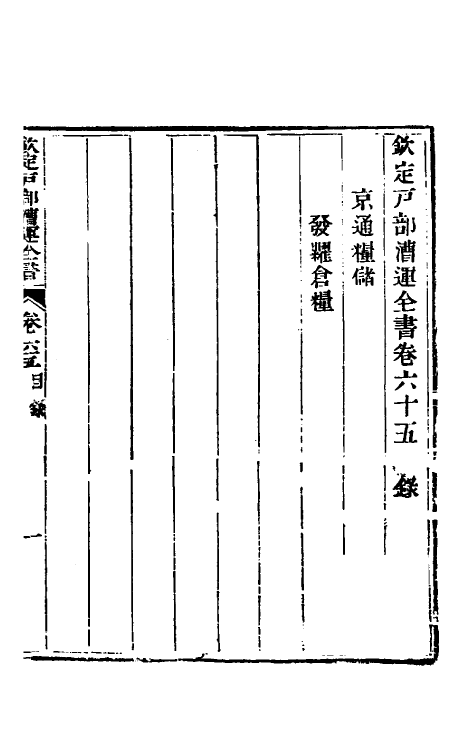 欽定戸部漕運全書卷六十五 錄
京通糧儲
發糶倉糧
欽定戸部漕運全書 卷六十五目錄 一